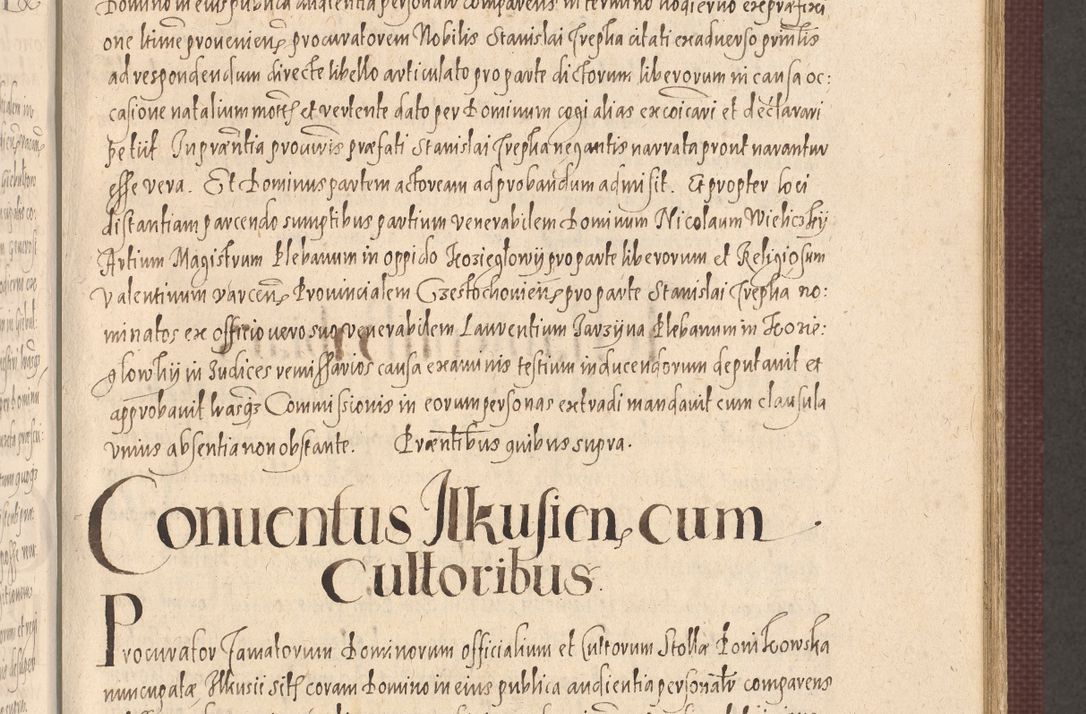 Domino in eius publica audientia personalr comparens in termino hodierno ex præfixi
one ltime prouenien procuratorem Nobilis Stanislai Trepka citati exaduerso princlis
ad respondendum directe libello articulato pro parte dictorum liberorum in causa oc:
casione natalium mott et vertente dato per Dominum cogi alias excoicari et declarari
petiit In præntia procuris præfati Stanislai Trepka negantis narrata prout narantur
esse vera. Et Dominus partem actoream ad probandum admisit. Et propter loci
distantiam parcendo sumptibus partium venerabilem Dominum Nicolaum Wieliczky
Artium Magistrum Plebanum in oppido Kozieglowy pro parte liberorum et Religiosum
Valentinum Provincialem Czestochouien pro parte Stanislai Trepka no:
minatos ex officio vero suo venerabilem Laurentium Jarzyna Plebanum in Kozie:
glowky in Judices remissarios causa examinis testium inducendorum deputauit et
approbauit lrasqz Commissionis in eorum personas extradi mandauit cum clausula
vnius absentia non obstante. Præntibus quibus supra.
Conuentus Ilkusien cum
Cultoribus
Procurator famatorum Dominorum officialium et Cultorum Stollæ Ponikowska
nuncupatæ Ilkusii sitt coram Domino in eius publica audientia personalr comparens